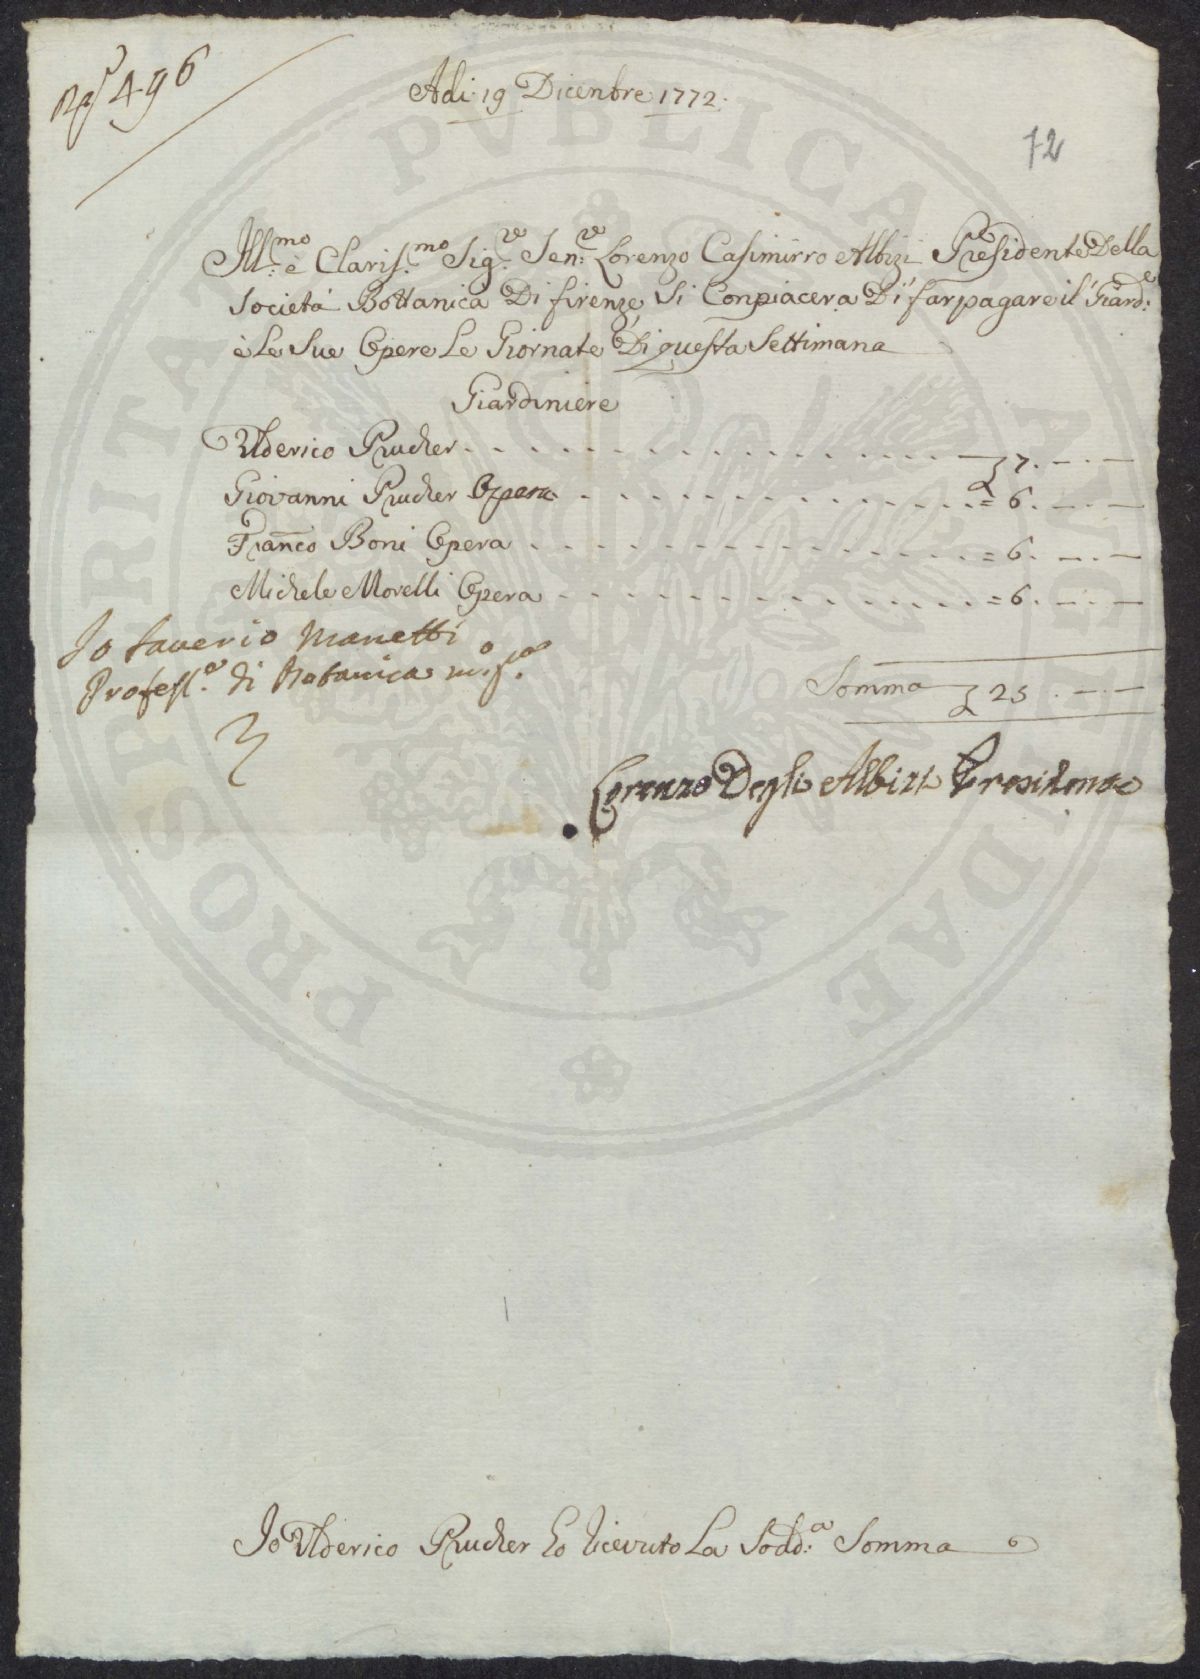 496
Adi 19 Dicenbre 1772.
72
Ill:mo è Claris:mo Sig:re Sen:re Lorenzo Casimirro Albizi Presidente Della
Società Bottanica Di firenze, Si Conpiacera Di far pagare il Giard:e
è Le Sue Opere Le Giornate Di questa Settimana
Giardiniere
Ulderico Prucher - - - - 7. - . -
Giovanni Prucher Opera - - - - = 6. - . -
Franco Boni Opera - - - - = 6. - . -
Michele Morelli Opera - - - - = 6. - . -
Io Saverio Manetti
Profess:e di Botanica m:o p:a
Somma 25. - . -
Lorenzo Degli Albizi Presidente
Io Ulderico Prucher ho ricevuto La Sodd:a Somma
PROSPERITATI PVBLICAE AVGENDAE